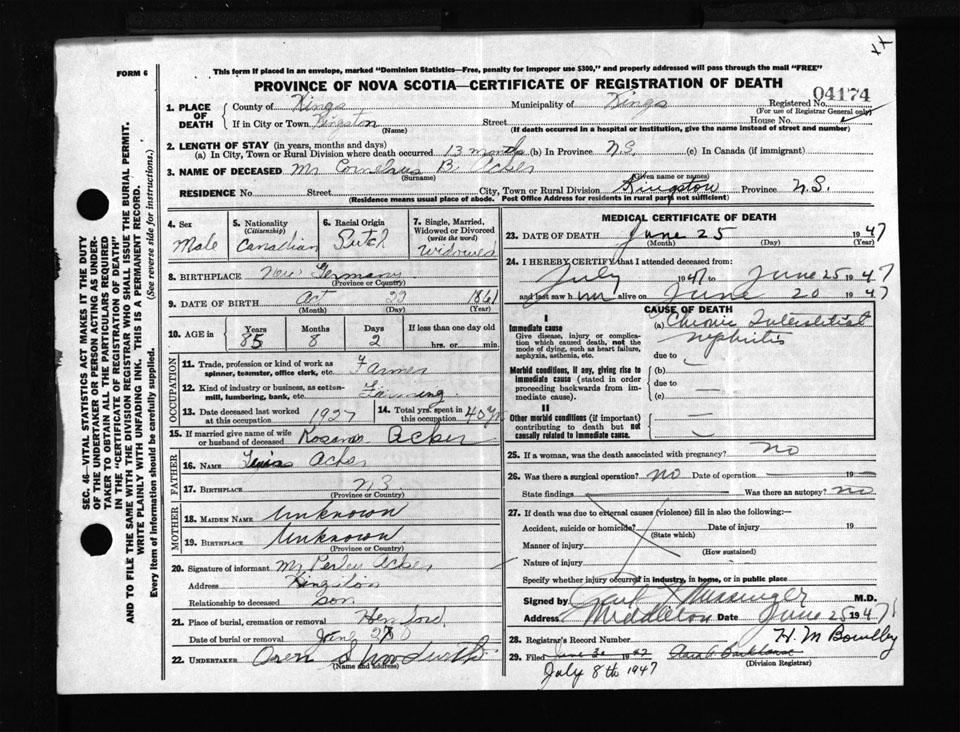 XX
FORM 6
This form if placed in an envelope, marked "Dominion Statistics—Free, penalty for improper use $300," and properly addressed will pass through the mail "FREE"
PROVINCE OF NOVA SCOTIA—CERTIFICATE OF REGISTRATION OF DEATH
04174
1. PLACE OF DEATH
County of Kings Municipality of Kings Registered No.
(For use of Registrar General only)
If in City or Town Kingston (Name) Street House No.
(If death occurred in a hospital or institution, give the name instead of street and number)
2. LENGTH OF STAY (in years, months and days)
(a) In City, Town or Rural Division where death occurred 13 months (b) In Province N.S. (c) In Canada (if immigrant)
3. NAME OF DECEASED Mr Cornelius B. Acker
(Surname) (Given name or names)
RESIDENCE No. Street City, Town or Rural Division Kingston Province N.S.
(Residence means usual place of abode. Post Office Address for residents in rural parts not sufficient)
4. Sex Male
5. Nationality (Citizenship) Canadian
6. Racial Origin Dutch
7. Single, Married, Widowed or Divorced (write the word) Widowed
8. BIRTHPLACE New Germany
(Province or Country)
9. DATE OF BIRTH Oct 22 1861
(Month) (Day) (Year)
10. AGE in Years 85 Months 8 Days 2 If less than one day old hrs. or min.
OCCUPATION
11. Trade, profession or kind of work as spinner, teamster, office clerk, etc. Farmer
12. Kind of industry or business, as cotton-mill, lumbering, bank, etc. Farming
13. Date deceased last worked at this occupation 1927
14. Total yrs. spent in this occupation 40 yrs
15. If married give name of wife or husband of deceased Acker
FATHER
16. Name Acker
17. Birthplace N.S.
(Province or Country)
MOTHER
18. Maiden Name Unknown
19. Birthplace Unknown
(Province or Country)
20. Signature of informant Mr Perley Acker
Address Kingston
Relationship to deceased son
21. Place of burial, cremation or removal
Date of burial or removal June
22. UNDERTAKER
(Name and address)
MEDICAL CERTIFICATE OF DEATH
23. DATE OF DEATH June 25 1947
(Month) (Day) (Year)
24. I HEREBY CERTIFY that I attended deceased from:
July 194 to June 25 1947
and last saw him alive on June 20 1947
CAUSE OF DEATH
I
Immediate cause
Give disease, injury or complication which caused death, not the mode of dying, such as heart failure, asphyxia, asthenia, etc.
(a) Chronic Interstitial Nephritis
due to
Morbid conditions, if any, giving rise to immediate cause (stated in order proceeding backwards from immediate cause).
(b) —
due to
(c) —
II
Other morbid conditions (if important) contributing to death but not causally related to immediate cause.
25. If a woman, was the death associated with pregnancy? no
26. Was there a surgical operation? no Date of operation — 19 —
State findings — Was there an autopsy? no
27. If death was due to external causes (violence) fill in also the following:—
Accident, suicide or homicide? Date of injury 19
(State which)
Manner of injury
(How sustained)
Nature of injury
Specify whether injury occurred in industry, in home, or in public place
Signed by Messenger M.D.
Address Middleton Date June 25 1947
28. Registrar's Record Number H. M. Bowlby
29. Filed June 30 1947
(Division Registrar)
July 8th 1947
SEC. 46—VITAL STATISTICS ACT MAKES IT THE DUTY
OF THE UNDERTAKER OR PERSON ACTING AS UNDER-
TAKER TO OBTAIN ALL THE PARTICULARS REQUIRED
IN THE "CERTIFICATE OF REGISTRATION OF DEATH"
AND TO FILE THE SAME WITH THE DIVISION REGISTRAR WHO SHALL ISSUE THE BURIAL PERMIT.
WRITE PLAINLY WITH UNFADING INK. THIS IS A PERMANENT RECORD.
Every item of information should be carefully supplied. (See reverse side for instructions.)